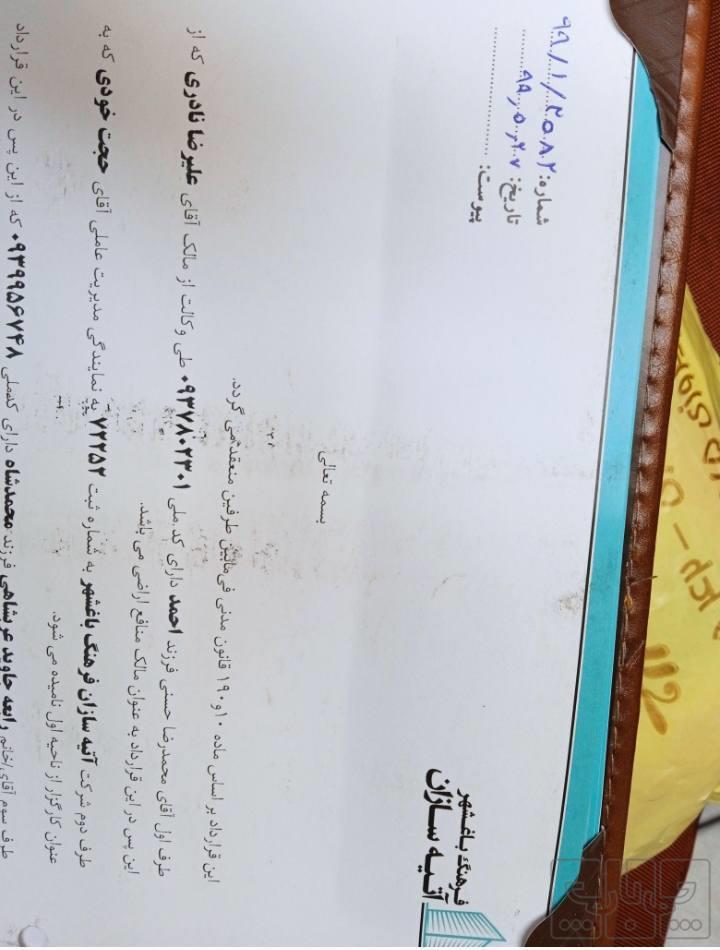 فرهنگ باغشهر
آتیه سازان
شماره: ۹۹/۱/۲۰۸۲
تاریخ: ۹۹,۵,۲۰۷
پیوست:
بسمه تعالی
این قرارداد بر اساس ماده ۱۰ و ۱۹۰ قانون مدنی فی مابین طرفین منعقد می گردد.
طرف اول آقای محمدرضا حسنی فرزند احمد دارای کد ملی ۰۹۳۷۸۰۲۳۰۱ طی وکالت از مالک آقای علیرضا نادری که از
این پس در این قرارداد به عنوان مالک منافع اراضی می باشد.
طرف دوم شرکت آتیه سازان فرهنگ باغشهر به شماره ثبت ۷۲۲۵۲ به نمایندگی مدیریت عاملی آقای حجت خودی که به
عنوان کارگزار از ناحیه اول نامیده می شود.
طرف سوم آقای/خانم رابعه جاوید عربشاهی فرزند محمدشاه دارای کدملی ۰۹۳۹۹۵۶۷۴۸ که از این پس در این قرارداد
۱۱۲